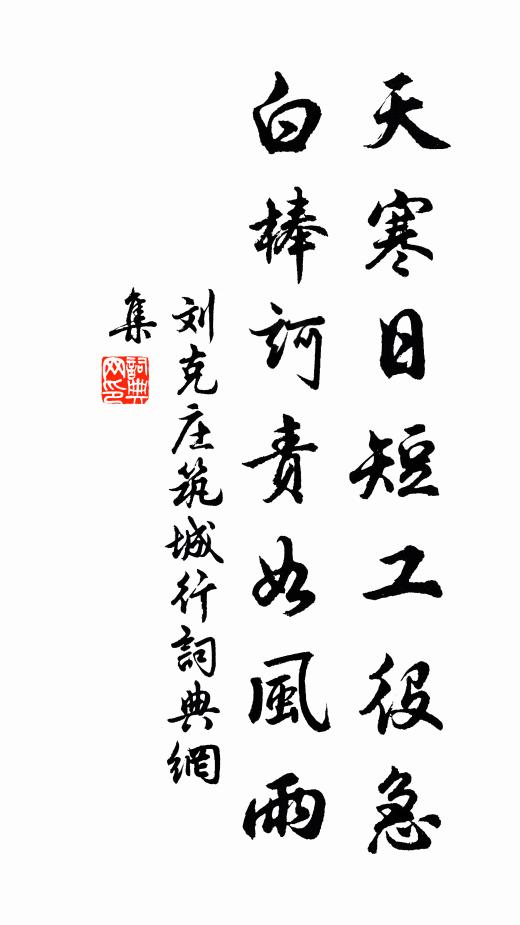 天寒日短工役急
白棒訶責如風雨
刘克庄筑城行詞典網
集
詞典
网印